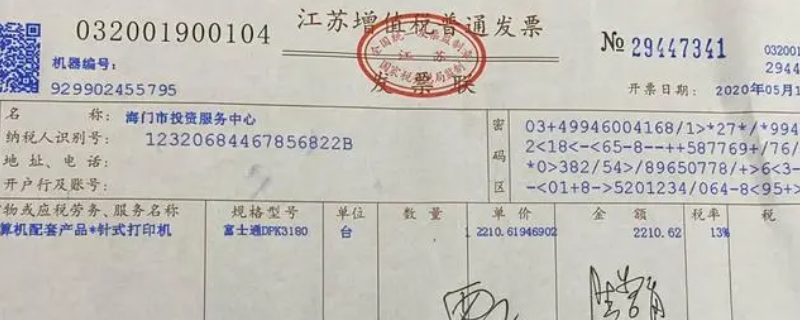 032001900104
江苏增值税普通发票
全国统一发票监制章
江苏
国家税务总局监制
发票联
№ 29447341
032001
2944
机器编号:
929902455795
开票日期: 2020年05月1
名称: 海门市投资服务中心
纳税人识别号: 12320684467856822B
地址、电话:
开户行及账号:
密码区
03+49946004168/1>*27*/*994
2<18<-<65-8--++587769+/76/
*0>382/54>/89650778/+>6<3-
-<01+8->5201234/064-8<95+>
物或应税劳务、服务名称 规格型号 单位 数量 单价 金额 税率 税
算机配套产品*针式打印机 富士通DPK3180 台 1 2210.61946902 2210.62 13%